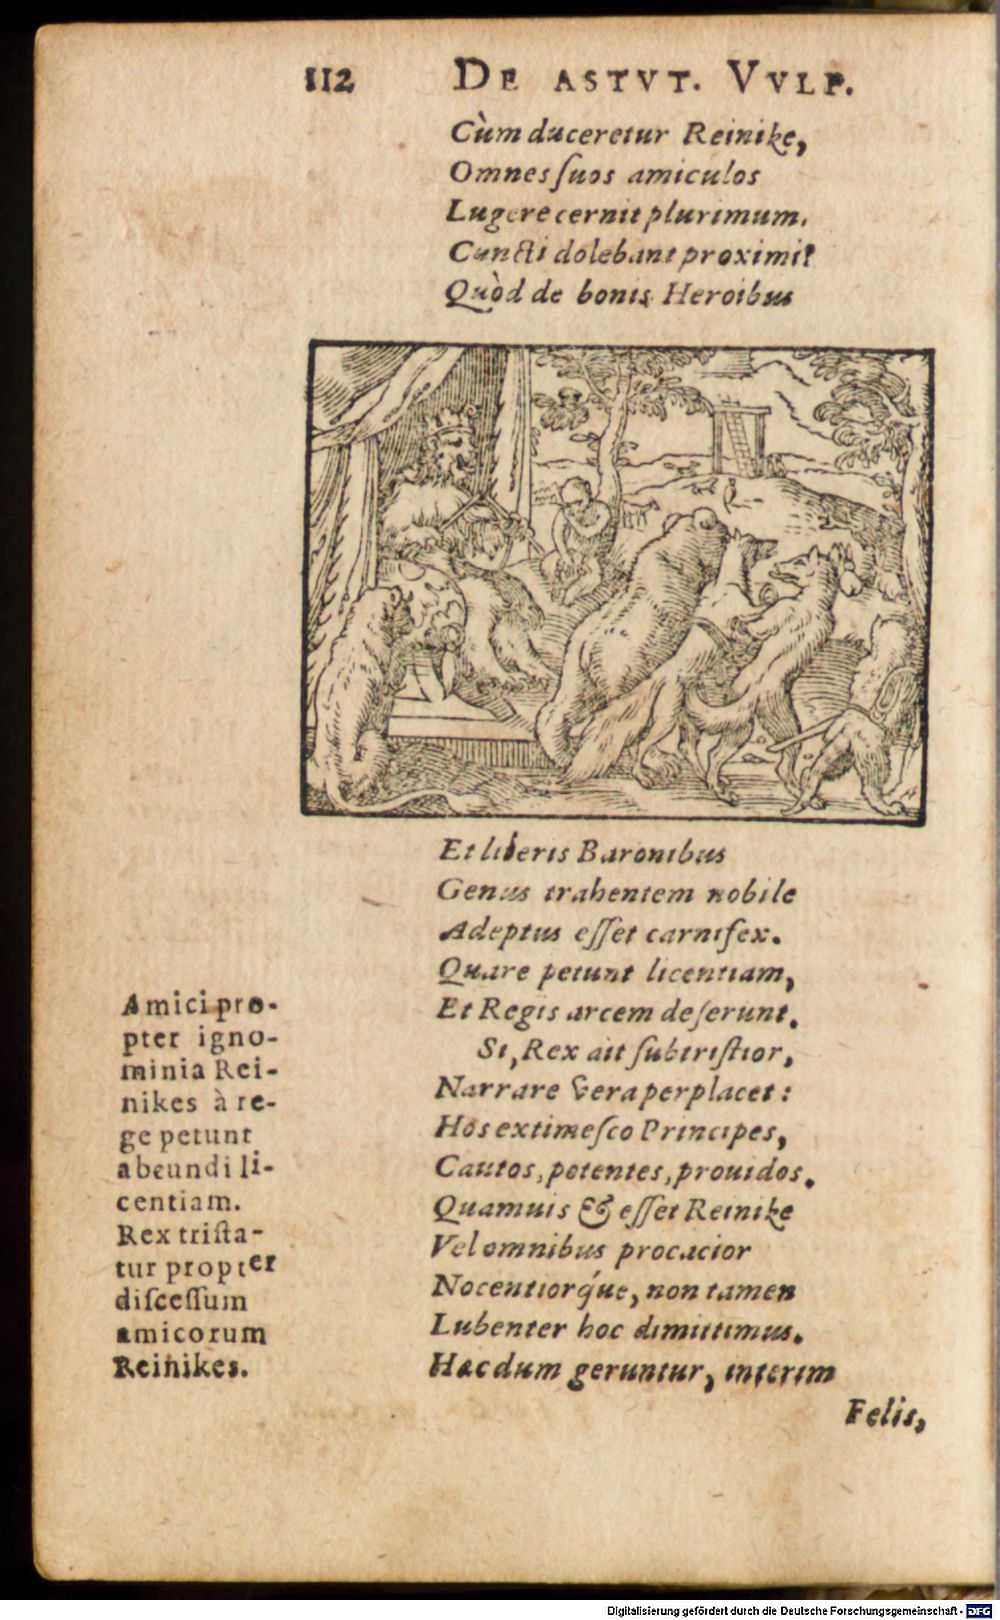 112 DE ASTVT. VVLP.
Cùm duceretur Reinike,
Omnes ſuos amiculos
Lugere cernit plurimum.
Cuncti dolebant proximi:
Quòd de bonis Heroibus
Et liberis Baronibus
Genus trahentem nobile
Adeptus eſſet carnifex.
Quare petunt licentiam,
Et Regis arcem deſerunt.
Si, Rex ait ſubtriſtior,
Narrare vera perplacet:
Hos extimeſco Principes,
Cautos, potentes, prouidos.
Quamuis & eſſet Reinike
Vel omnibus procacior
Nocentiorq́ue, non tamen
Lubenter hoc dimittimus.
Hæc dum geruntur, interim
Amici pro-
pter igno-
minia Rei-
nikes à re-
ge petunt
abeundi li-
centiam.
Rex triſta-
tur propter
diſceſſum
amicorum
Reinikes.
Felis,
Digitalisierung gefördert durch die Deutsche Forschungsgemeinschaft - DFG